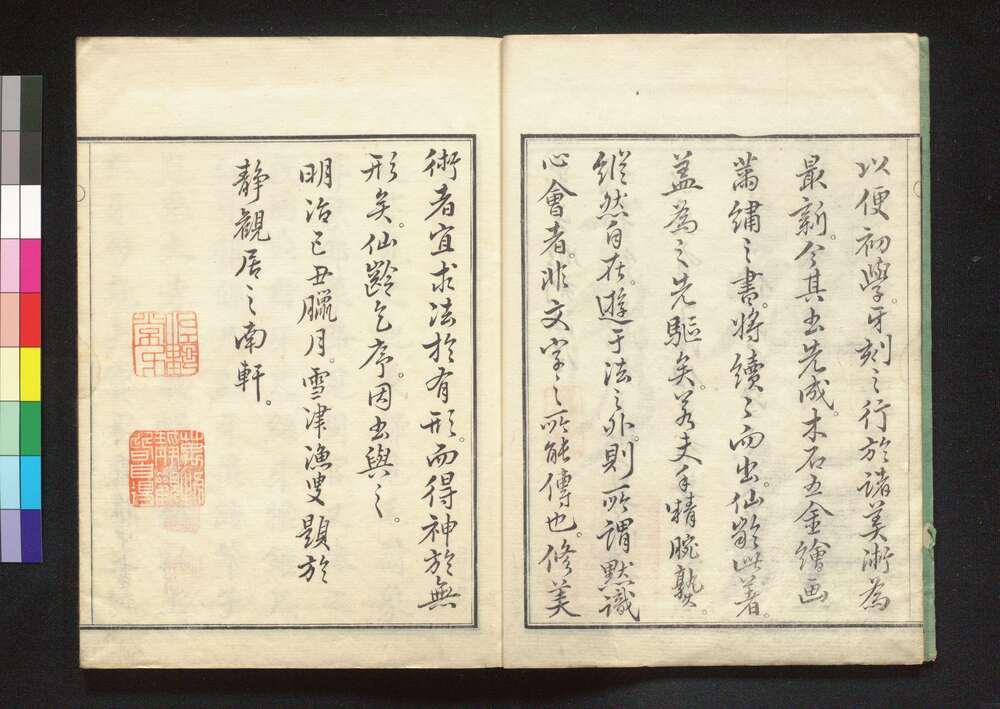 以便初學。牙刻之行於諸美術為
最新。今其書先成。木石五金繪画
繡之書。將續々而出。仙齡此著。
蓋為之先驅矣。若夫手精腕熟。
縱然自在。遊于法之外。則所謂默識
心會者。非文字之所能傳也。修美
術者宜求法於有形。而得神於無
形矣。仙齡乞序。因書與之。
明治己丑臘月。雪津漁叟題於
靜觀居之南軒。
佐野
常民
萬物
靜觀
皆自得